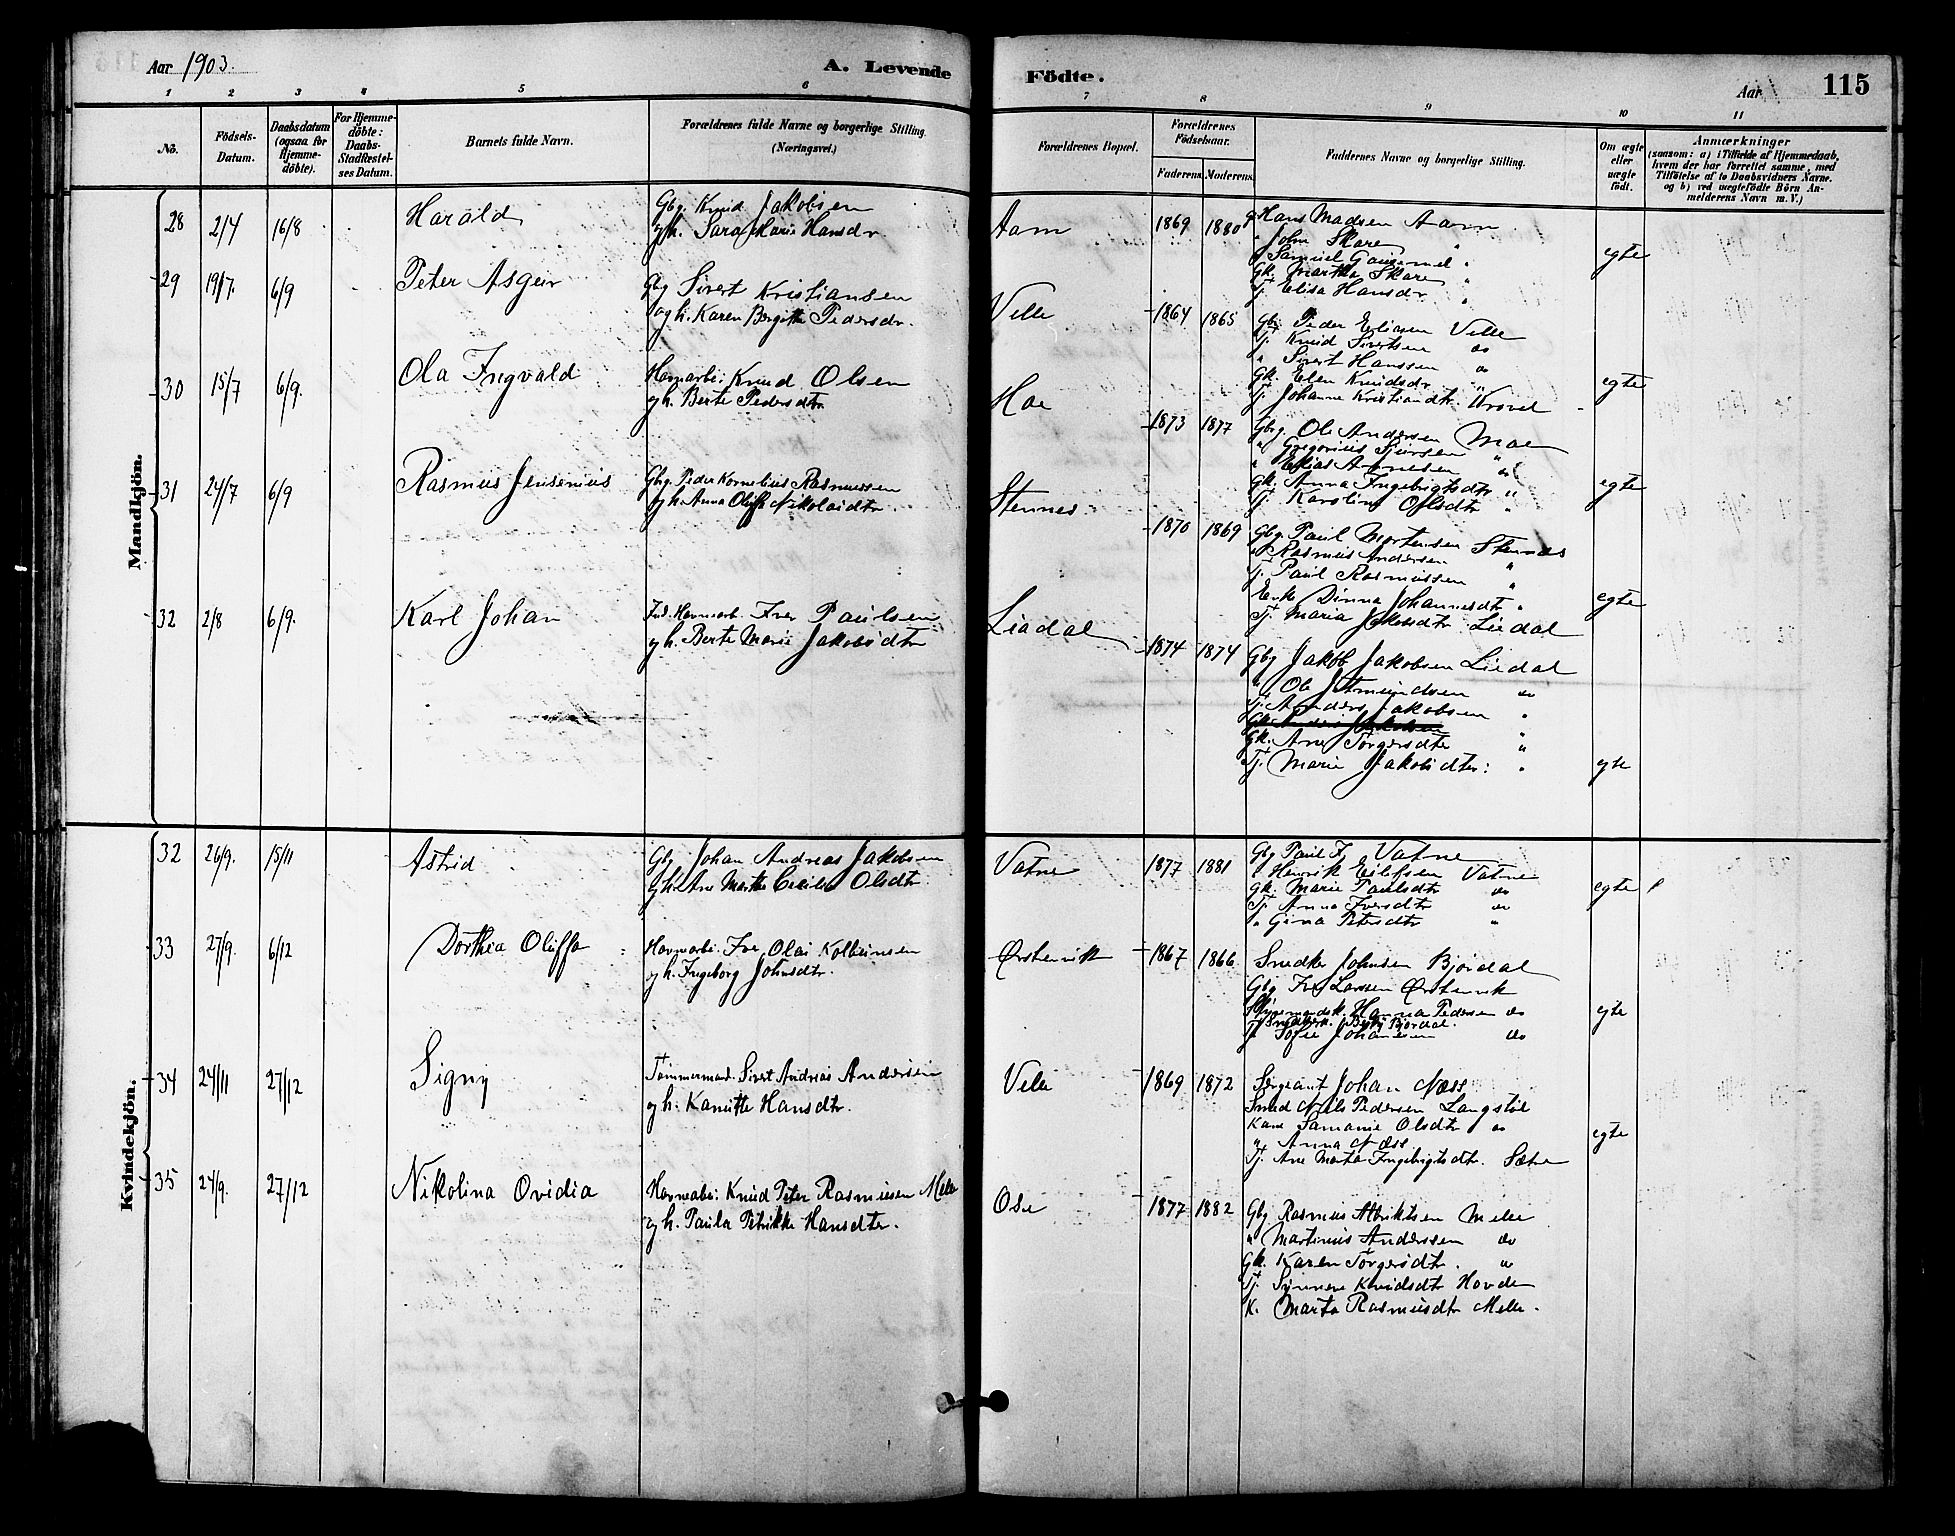 Aar 1903.
A. Levende
Födte.
Aar
115
1 2 3 4 5 6
7 8 9 10 11
No.
Födsels-Datum.
Daabsdatum (ogsaa for Hjemme-döbte).
For Hjemme-döbte: Daabs-Stadfæstel-ses Datum.
Barnets fulde Navn.
Forældrenes fulde Navne og borgerlige Stilling.
(Næringsvei.)
Forældrenes Bopæl.
Forældrenes Födselsaar.
Faderens. Moderens.
Faddernes Navne og borgerlige Stilling.
Om ægte eller uægte födt.
Anmærkninger
(saasom: a) i Tilfælde af Hjemmedaab,
hvem der har forrettet samme, med
Tilföielse af to Daabsvidners Navne.
og b) ved uægtefödte Börn An-
melderens Navn m. V.)
Mandkjön.
28 2/4 16/8 Harald
Gbg. Knud Jakobsen
og h. Sara Marie Hansdr.
Aam 1869 1880
Hans Madsen Aam
John Skare "
Samuel "
Gk. Martha Skare "
Tj. Elisa Hansdr "
egte
29 19/7. 6/9 Peter Asgeir
Gbg Sivert Kristiansen
og h. Karen Bergitte Pedersdr.
Velle 1864 1865
Gbr. Peder Eliasen Velle
Tj. Knud Sivertsen do
" Sivert Hanssen do
Gk. Elen Knudsdr "
Tj. Johanne Kristiandtr.
egte
30 15/7 6/9. Ola Ingvald
Havnearbei. Knud Olsen
og h. Berte Pedersdtr
Moe 1873 1877
Gbg. Ole Andersen Moe
" Gregorius Sjursen "
" Elias Arnesen do
Gk. Anna Ingebrigtsdtr "
Tj. Karoline Olsdtr "
egte
31 24/7 6/9 Rasmus Jensenius
Gbg. Peder Kornelius Rasmussen
og h. Anna Oluffa Nikolaidtr.
Stennes 1870 1869
Gbg. Paul Mortensen Stennes
" Rasmus Andersen "
Tj. Paul Rasmussen "
Enk Dinna Johannesdtr "
Tj. Maria Jakobsdtr Liedal
egte
32 2/8 6/9. Karl Johan
Ind. Havnearb. Iver Paulsen
og h. Berte Marie Jakobsdtr
Liadal 1874 1874
Gbg Jakob Jakobsen Liedal
" Ole Aamundsen do
Tj. Anders Jakobsen "
Gk. Ane Torgersdtr "
Tj. Marie Jakobsdtr: "
egte
Kvindekjön.
32 26/9. 15/11 Astrid
Gbg Johan Andreas Jakobsen
og h. Ane Marthe Cecilie Olsdtr
Vatne 1877 1881
Gbg Paul J. Vatne
" Henrik Eilefsen Vatne
Gk. Marie Paulsdtr do
Tj. Anna Iversdtr do
" Gina Petersdtr "
egte
33 27/9. 6/12 Dorthea Oluffa
Havnearbei. Iver Olai Kolbeinsen
og h. Ingeborg Johnsdtr.
Ørstenvik 1867 1866
Snedker Johnsen Bjørdal
Gbg Iver Larsen Ørstenvik
Hanna Pedersen do
Bjørdal.
Tj Sofie Johansen do
egte
34 24/11 27/12 Signy
Tømmermand. Sivert Andreas Andersen
og h. Kanutte Hansdtr.
Velle 1869 1872
Sergeant Johan Næss
Smed Nils Pedersen Langstøl
Kone Samanie Olsdtr do
" Anna Næss.
Tj. Ane Marta Ingebrigtsdtr. Sætre
egte
35 24/9. 27/12 Nikolina Ovidia
Havnearbei: Knud Peter Rasmusen Melle
og h. Paula Petrikke Hansdtr.
Ose 1877 1882
Gbg Rasmus Albriktsen Melle
" Martinus Anderssen do
Gk. Karen Torgersdtr. "
Tj. Synneve Knudsdtr Hovde
K. Marta Rasmusdtr Melle.